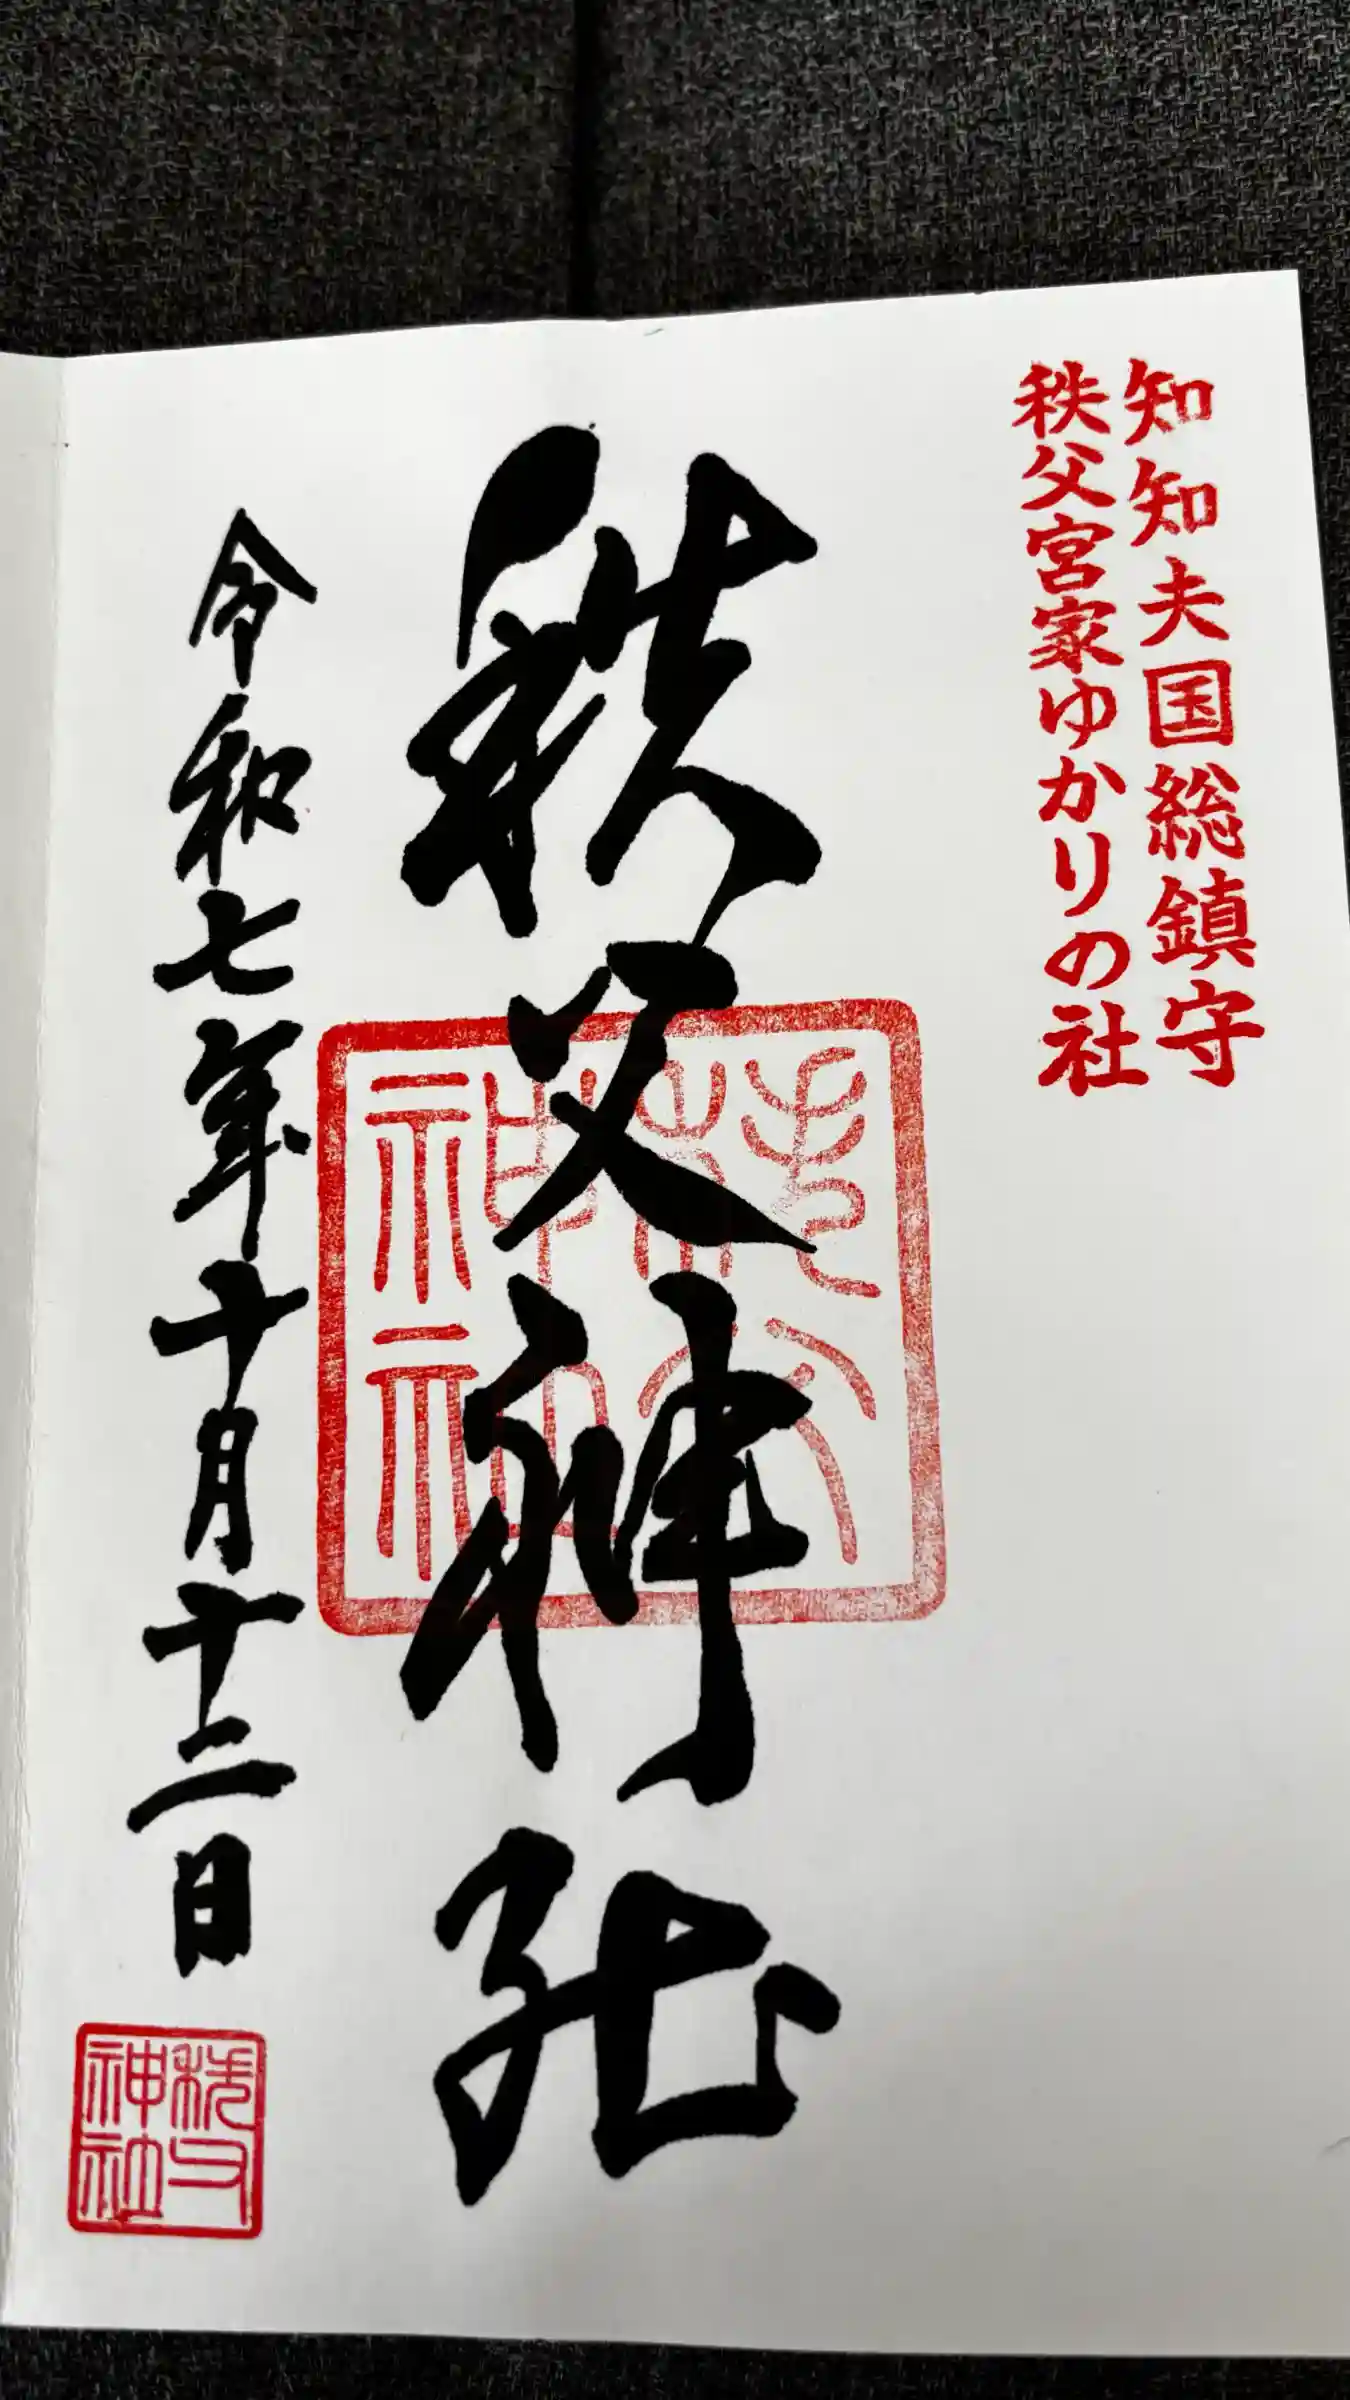 知知夫国総鎮守
秩父宮家ゆかりの社
秩父神社
秩父神社
令和七年十月十二日
秩父神社